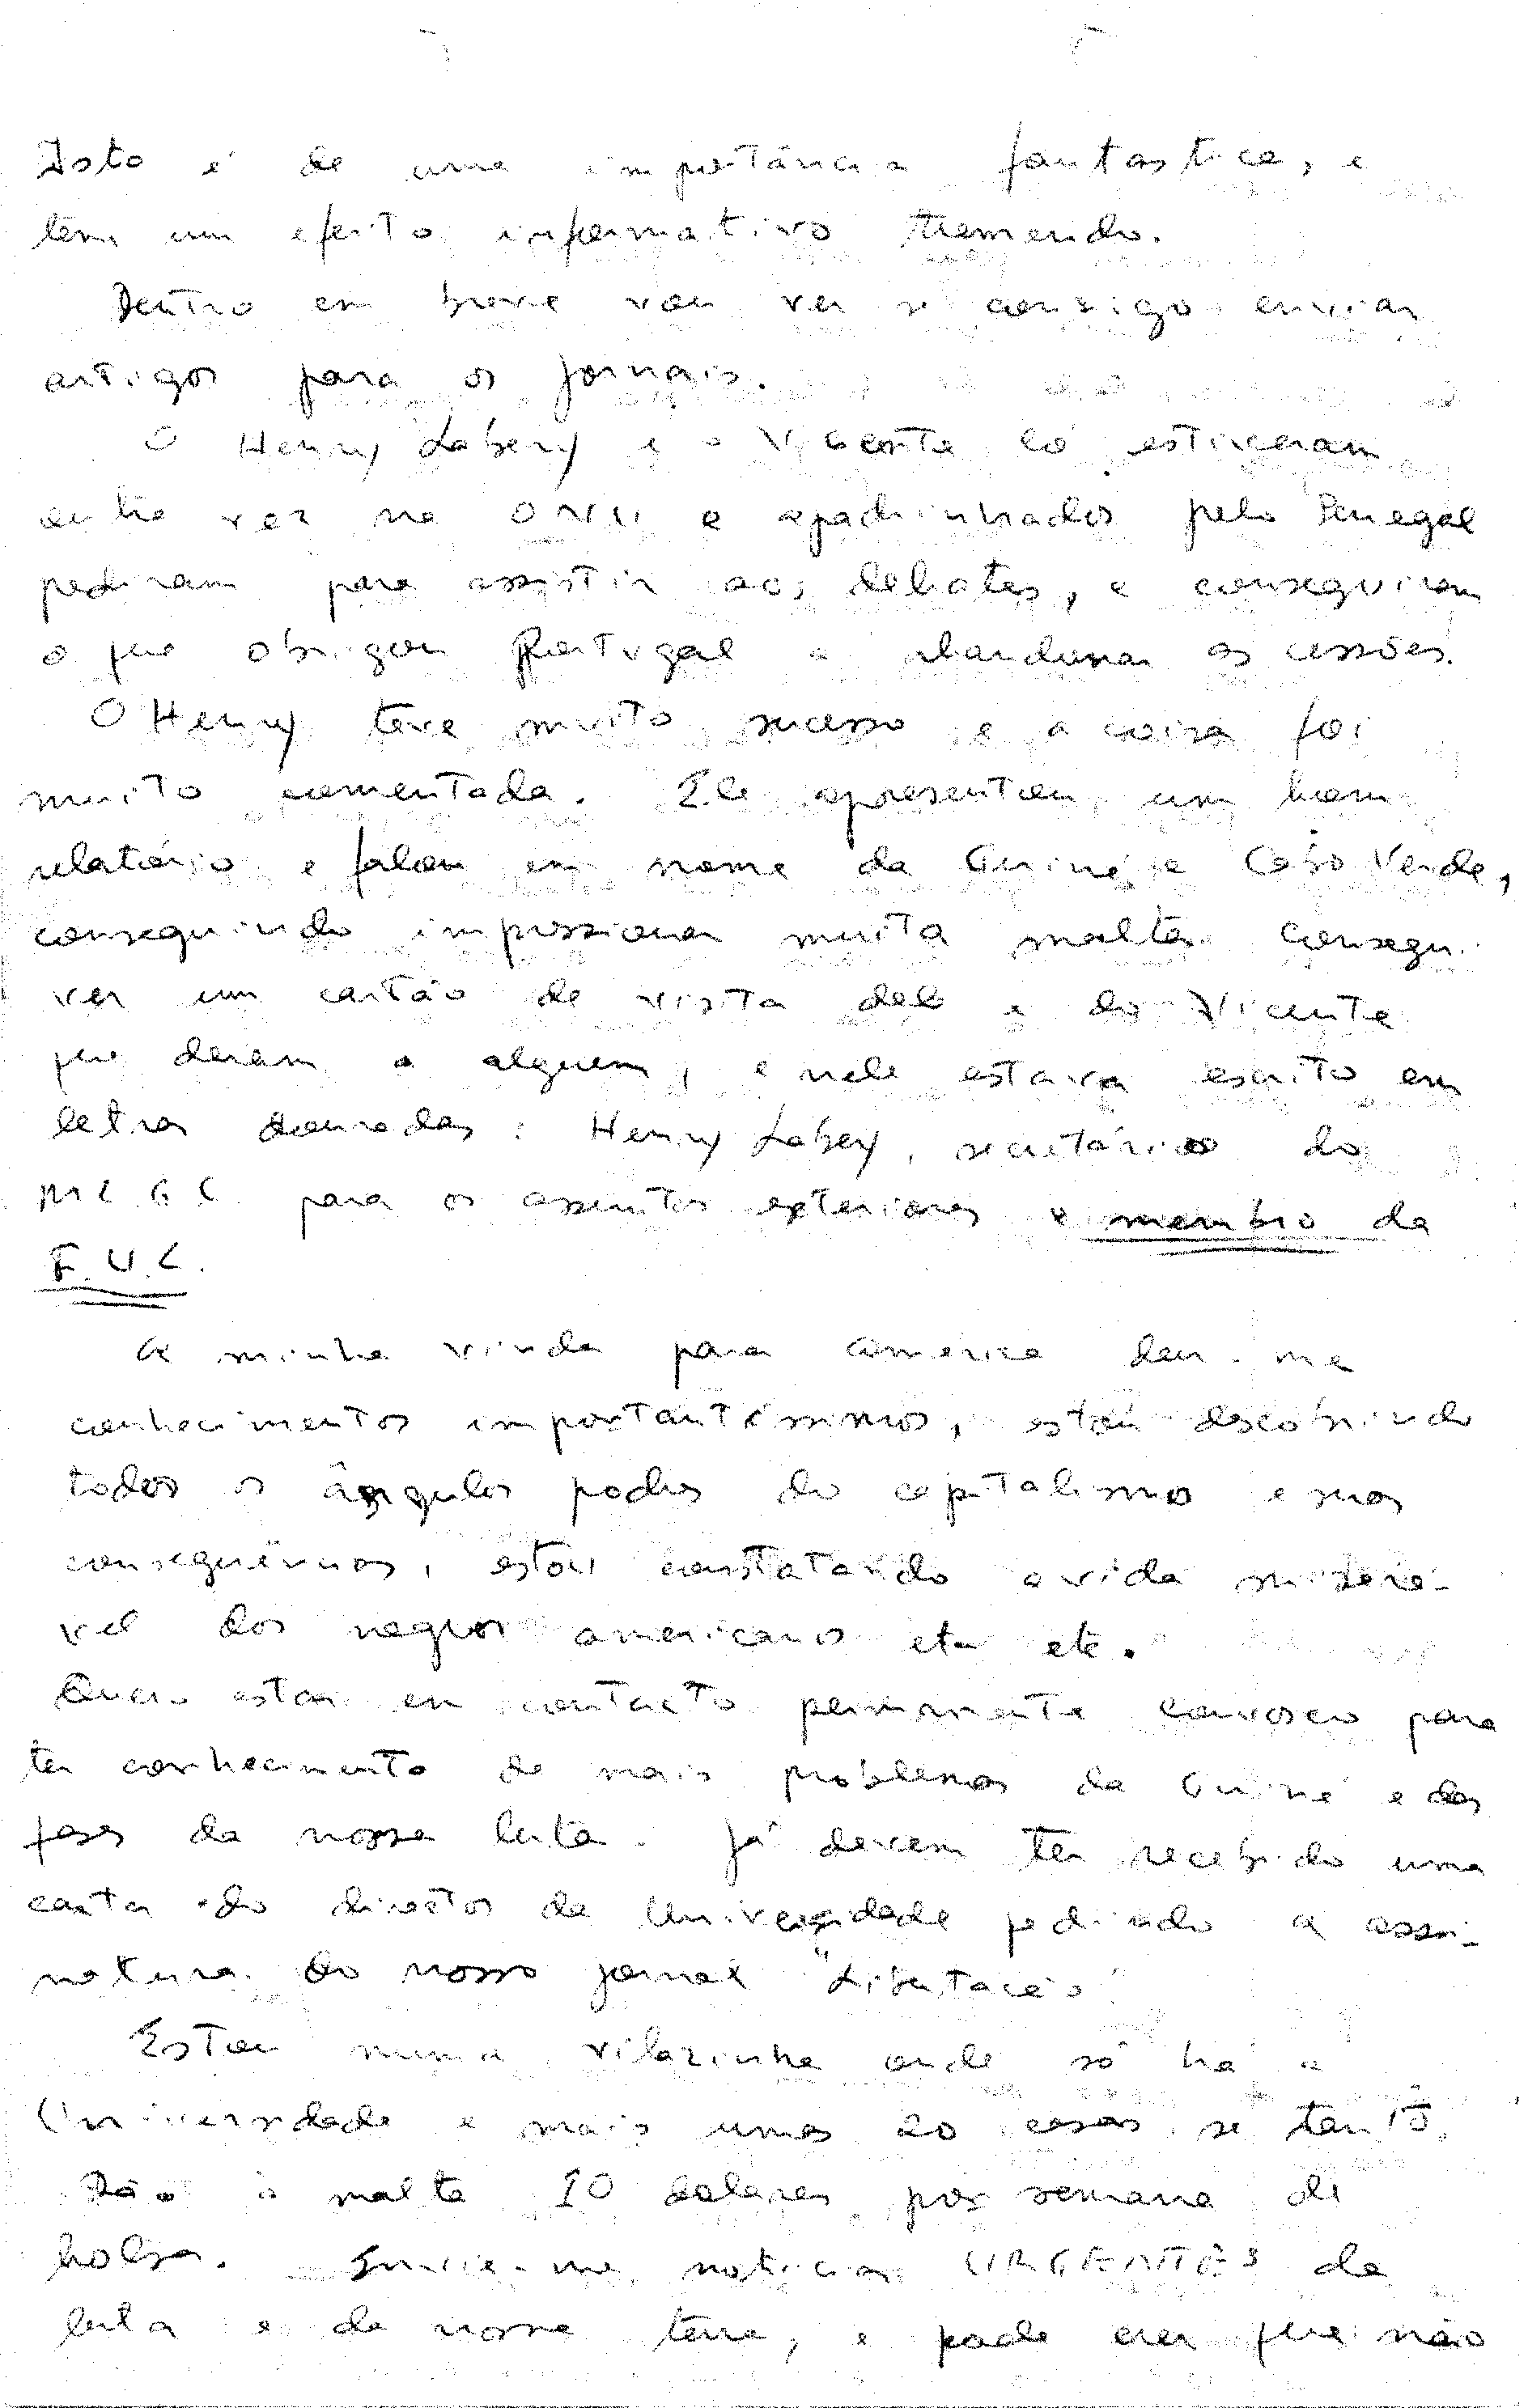 Isto é de uma importância fantastica, e
tem um efeito informativo tremendo.
Dentro em breve vou ver se consigo enviar
artigos para os jornais.
O Henry Labery e o Vicente lá estiveram
outra vez na ONU e apadrinhados pelo Senegal
pediram para assistir aos debates, e conseguiram
o que obrigou Portugal a abandonar as cessões.
O Henry teve muito sucesso e a coisa foi
muito comentada. Ele apresentou um bom
relatório e falou em nome da Guiné e Cabo Verde,
conseguindo impressionar muita malta. Consegui
ver um cartão de visita dele e do Vicente
que deram a alguem, e nele estava escrito em
letras douradas: Henry Labery, secretário do
M L G C para os assuntos exteriores e membro da
F.U.L.
A minha vinda para America deu-me
conhecimentos importantíssimos, estou descobrindo
todos os ângulos podres do capitalismo e suas
consequências, estou constatando a vida miserá-
vel dos negros americanos etc etc.
Quero estar em contacto permanente convosco para
ter conhecimento de mais problemas da Guiné e das
fases da nossa luta. Já devem ter recebido uma
carta do director da Universidade pedindo a assi-
natura do nosso jornal "Libertação"
Estou numa vilazinha onde só há a
Universidade e mais umas 20 casas se tanto.
Dão à malta 10 dolares por semana de
bolsa. Envie-me noticias URGENTES da
luta e da nossa terra, e pode crer que não